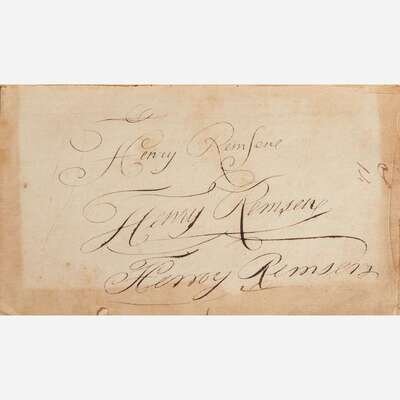 Henry Remsen
Henry Remsen
Henry Remsen